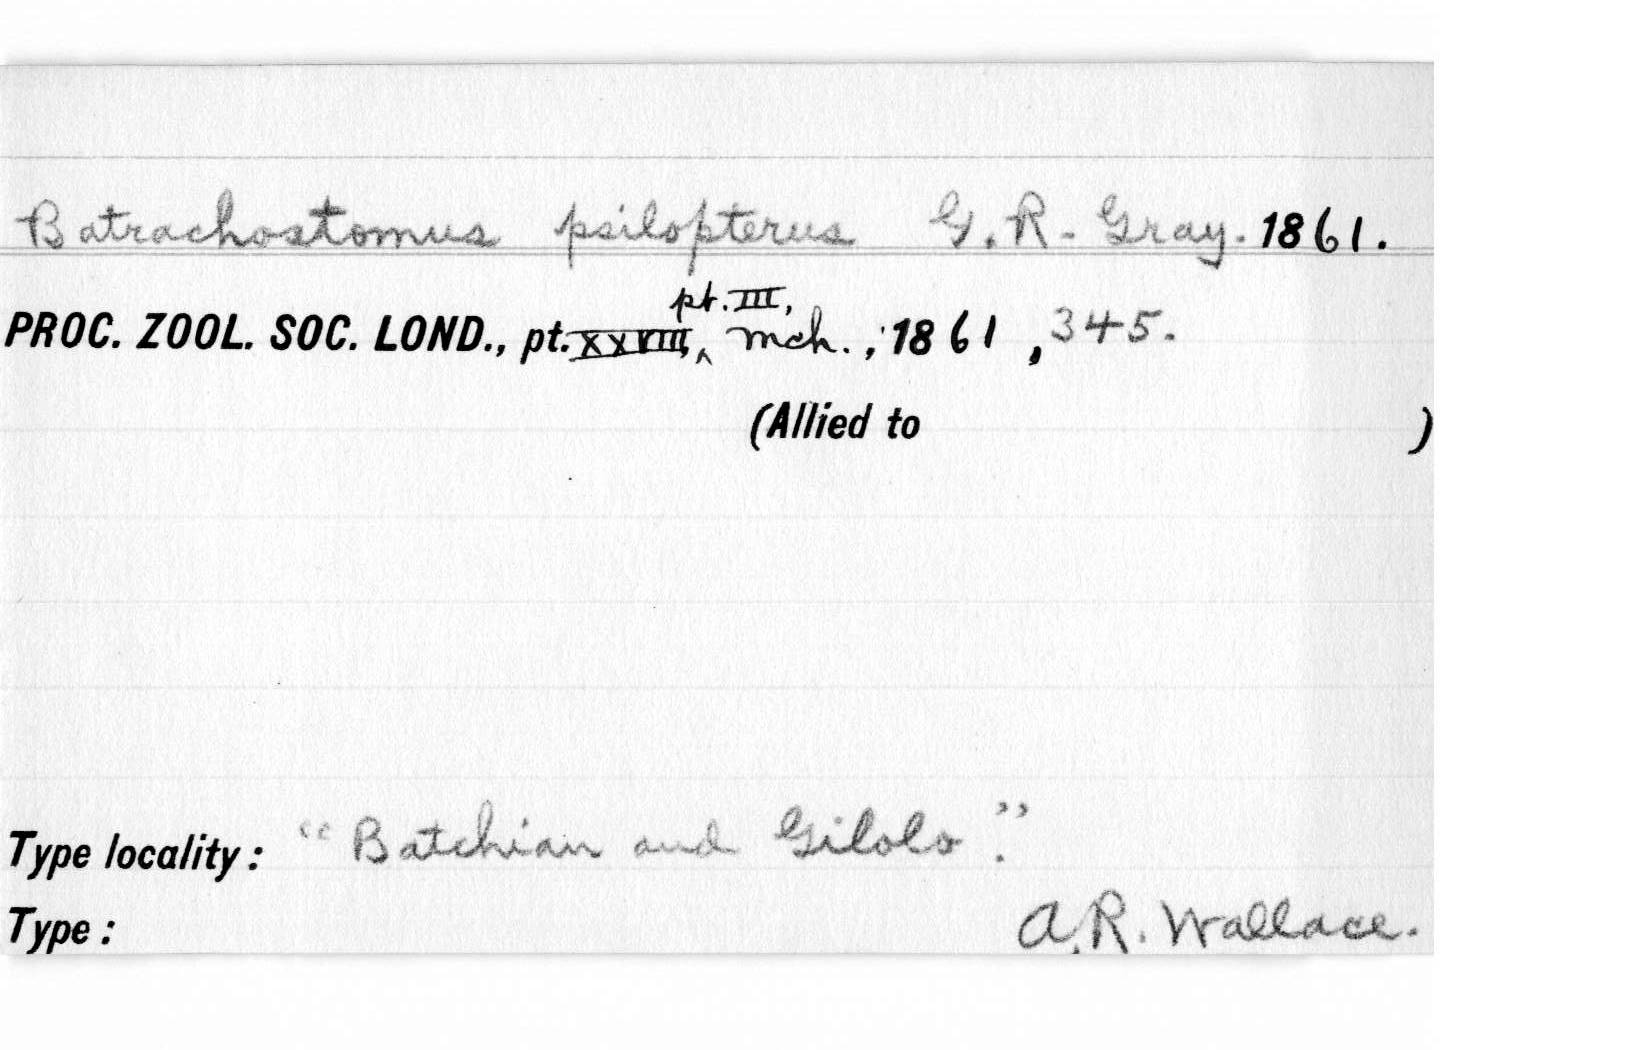 Batrachostomus psilopterus G. R. Gray. 1861.
pt. III,
PROC. ZOOL. SOC. LOND., pt. XXVIII, ‸ mch., 1861, 345.
(Allied to )
Type locality: "Batchian and Gilolo".
Type: A. R. Wallace.